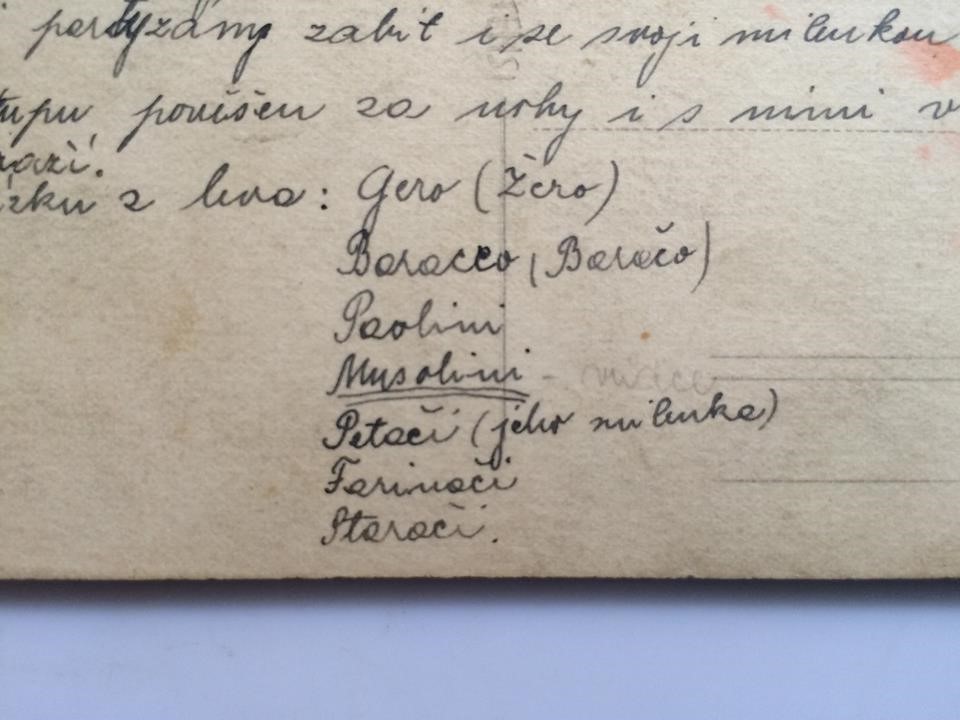 partyzány zabit i se svoji milenkou
tupu pověšen za nohy i s nimi v
zku z leva: Gero (Žero)
Baracco (Baračo)
Paolini
Musolini -
Petači (jeho milenka)
Farinači
Starači.